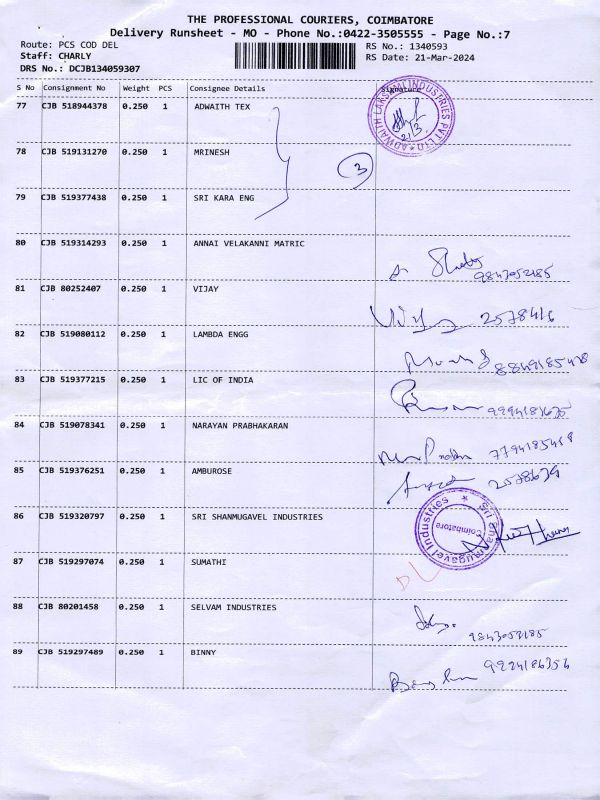 THE PROFESSIONAL COURIERS, COIMBATORE
Delivery Runsheet - MO - Phone No.:0422-3505555 - Page No.:7
Route: PCS COD DEL RS No.: 1340593
Staff: CHARLY RS Date: 21-Mar-2024
DRS No.: DCJB134059307
S No Consignment No Weight PCS Consignee Details Signature
77 CJB 518944378 0.250 1 ADWAITH TEX
ADWAITH LAKSHMI INDUSTRIES PVT LTD
21/3
78 CJB 519131270 0.250 1 MRINESH
3
79 CJB 519377438 0.250 1 SRI KARA ENG
80 CJB 519314293 0.250 1 ANNAI VELAKANNI MATRIC
9843052185
81 CJB 80252407 0.250 1 VIJAY
Vijay 2578416
82 CJB 519080112 0.250 1 LAMBDA ENGG
83 CJB 519377215 0.250 1 LIC OF INDIA
84 CJB 519078341 0.250 1 NARAYAN PRABHAKARAN
85 CJB 519376251 0.250 1 AMBUROSE
86 CJB 519320797 0.250 1 SRI SHANMUGAVEL INDUSTRIES
Sri Shanmugavel Industries
Coimbatore
87 CJB 519297074 0.250 1 SUMATHI
DL
88 CJB 80201458 0.250 1 SELVAM INDUSTRIES
9843052185
89 CJB 519297489 0.250 1 BINNY
9224186356